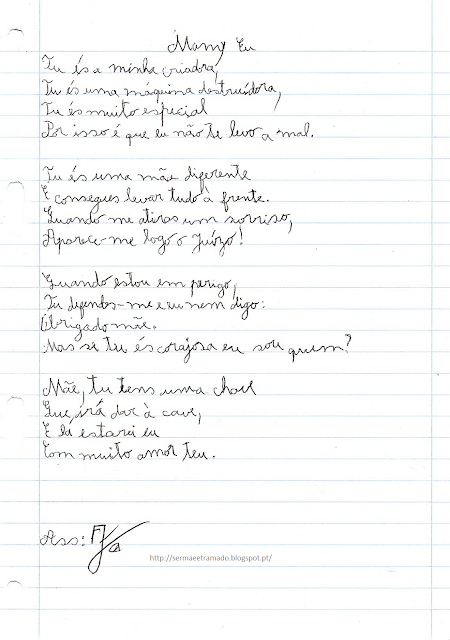 Mamy Eu
Tu és a minha criadora,
Tu és uma máquina destruidora,
Tu és muito especial
Por isso é que eu não te levo a mal.
Tu és uma mãe diferente
E consegues levar tudo à frente.
Quando me atiras um sorriso,
Aparece-me logo o juízo!
Quando estou em perigo,
Tu defendes-me e eu nem digo:
Obrigado mãe.
Mas se tu és corajosa eu sou quem?
Mãe, tu tens uma chave
Que, irá dar à cave,
E lá estarei eu
Com muito amor teu.
Ass:
http://sermaeetramado.blogspot.pt/